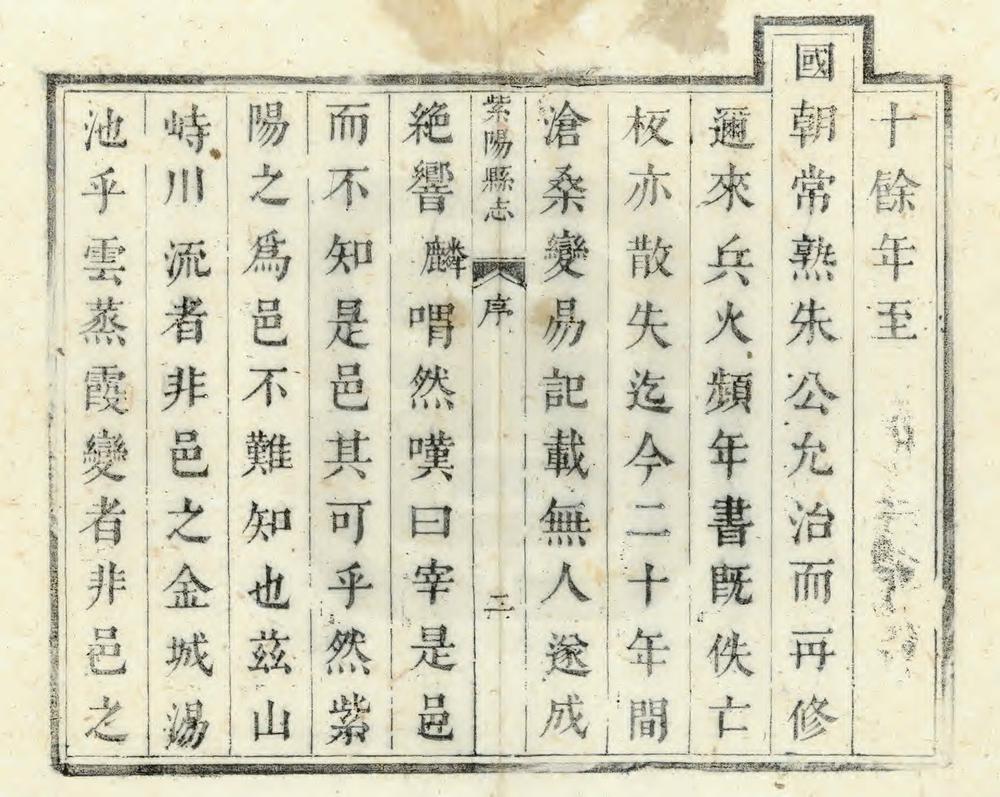 十餘年至
國朝常熟朱公允治而再修
邇來兵火頻年書既佚亡
板亦散失迄今二十年間
滄桑變易記載無人遂成
紫陽縣志 序 二
絶響麟喟然嘆曰宰是邑
而不知是邑其可乎然紫
陽之爲邑不難知也茲山
峙川流者非邑之金城湯
池乎雲蒸霞變者非邑之